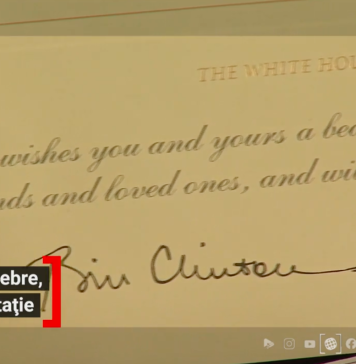 THE WHITE HOU
wishes you and yours a bea
nds and loved ones, and wi
Bill Clinton
ebre,
taţie